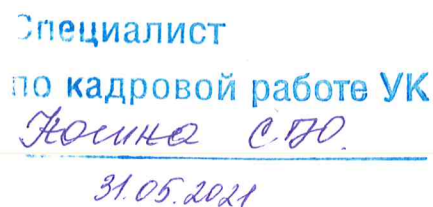 Специалист
по кадровой работе УК
С.Ю.
31.05.2021